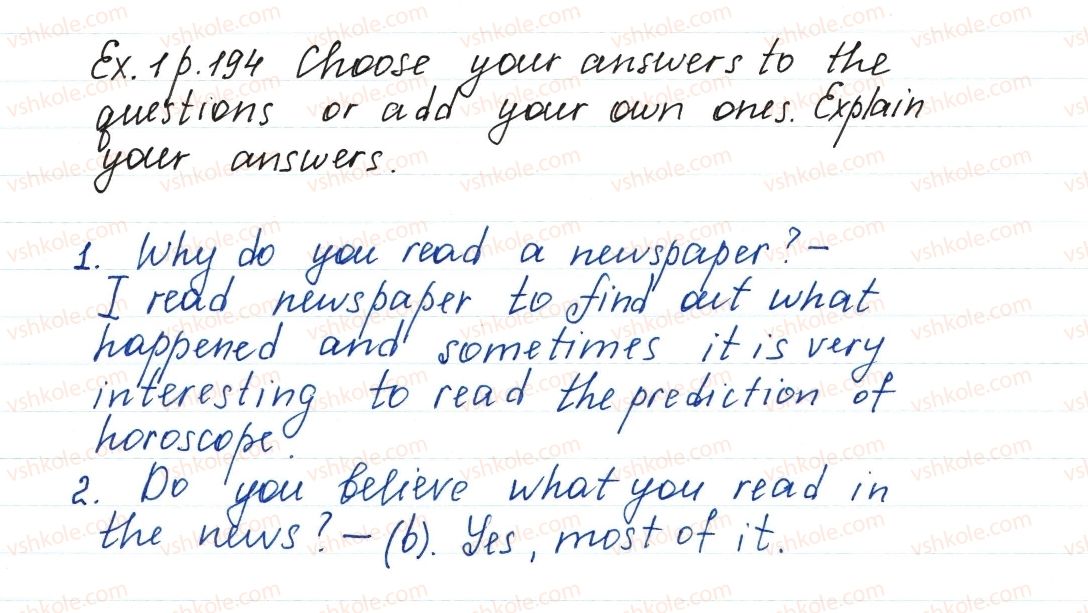 Ex. 1 p. 194 Choose your answers to the
questions or add your own ones. Explain
your answers.
1. Why do you read a newspaper? –
I read newspaper to find out what
happened and sometimes it is very
interesting to read the prediction of
horoscope.
2. Do you believe what you read in
the news? – (b). Yes, most of it.